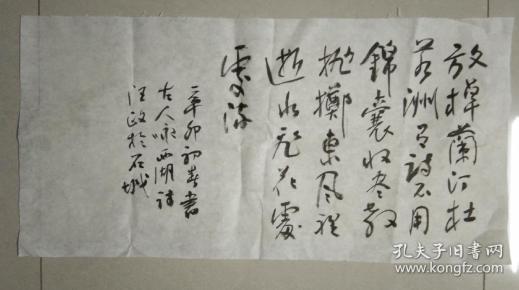 放棹蘭汀杜
若洲有詩不用
錦囊收尽教
拋擲東風裡
逝水飛花處
處流
辛卯初春書
古人咏西湖詩
汪政於石城
孔夫子旧书网
www.kongfz.com